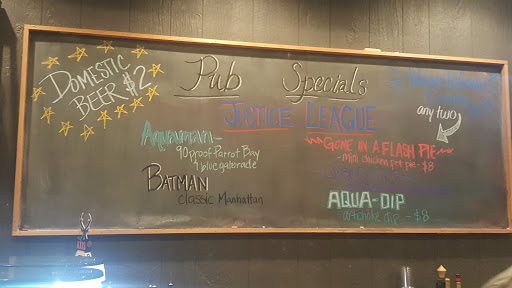 DOMESTIC
BEER $2
Pub Specials
JUSTICE LEAGUE
Aquaman -
90 proof Parrot Bay
& blue gatorade
BATMAN
Classic Manhattan
any two
GONE IN A FLASH PIE
- mini chicken pot pie - $8
AQUA-DIP
artichoke dip - $8